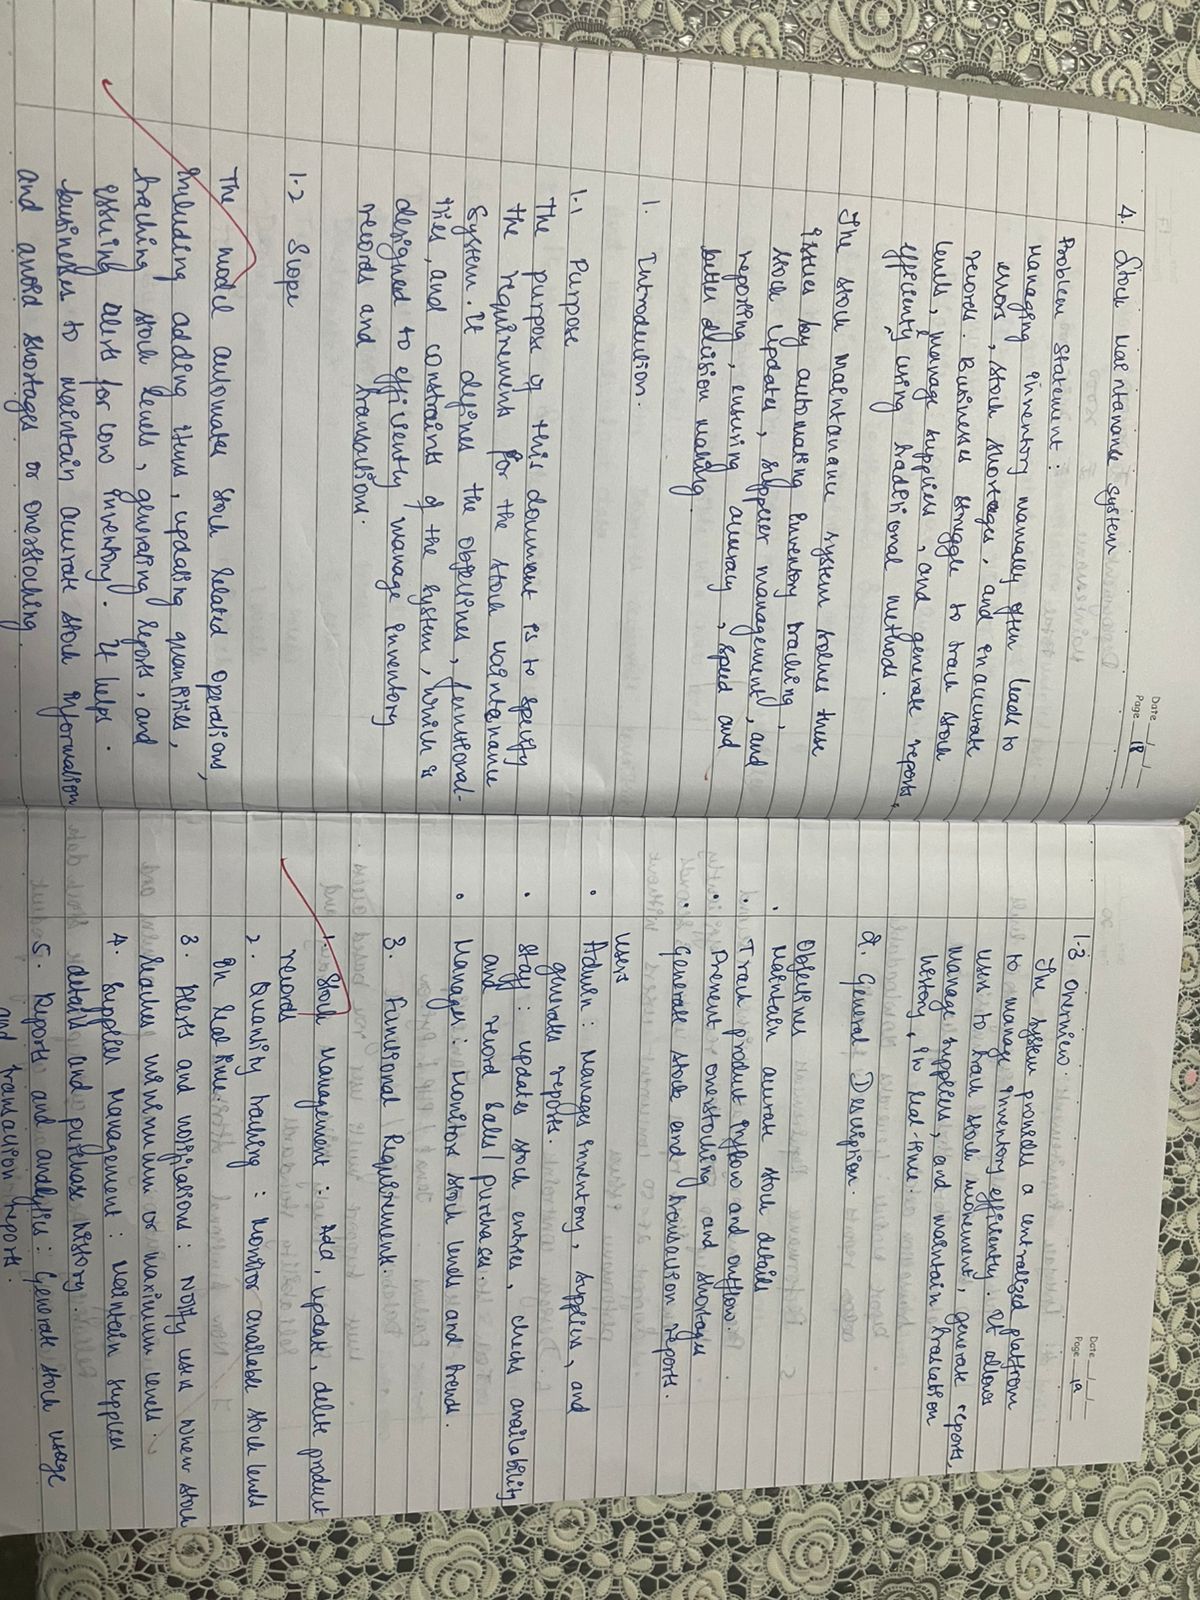 Date __/__/__
Page 18
4. Stock Maintanance System
Problem Statement :
Managing inventory manually often leads to
errors, stock shortages, and inaccurate
records. Businesses struggle to track stock
levels, manage suppliers, and generate reports,
efficiently using traditional methods.
The stock maintanance system solves these
issues by automating inventory tracking,
stock updates, supplier management, and
reporting, ensuring accuracy, speed and
better decision making
1. Introduction.
1.1 Purpose
The purpose of this document is to specify
the requirements for the stock maintanance
system. It defines the objectives, functional-
ities, and constraints of the system, which is
designed to efficiently manage inventory
records and transactions.
1.2 Scope
The model automates stock related operations,
including adding items, updating quantities,
tracking stock levels, generating reports, and
issuing alerts for low inventory. It helps
businesses to maintain accurate stock information
and avoid shortages or overstocking.
Date __/__/__
Page 19
1.3 Overview.
The system provides a centralized platfrom
to manage inventory efficiently. It allows
users to track stock movement, generate reports,
manage suppliers, and maintain transaction
history, in real-time.
2. General Description.
Objectives
• Maintain accurate stock details
• Track product inflow and outflow.
• Prevent overstocking and shortages
• Generate stock and transaction reports.
Users
• Admin : Manages inventory, suppliers, and
generates reports.
• Staff : updates stock entries, checks availability
and record sales/ purchases.
• Manager : Monitors stock levels and trends.
3. Functional Requirements.
1. Stock Management : Add, update, delete product
records
2. Quantity tracking : Monitor available stock levels
in real time.
3. Alerts and notifications : Notify users when stock
reaches minimum or maximum levels.
4. Supplier Management : Maintain supplier
details and purchase history.
5. Reports and analytics : Generate stock usage
and transaction reports.